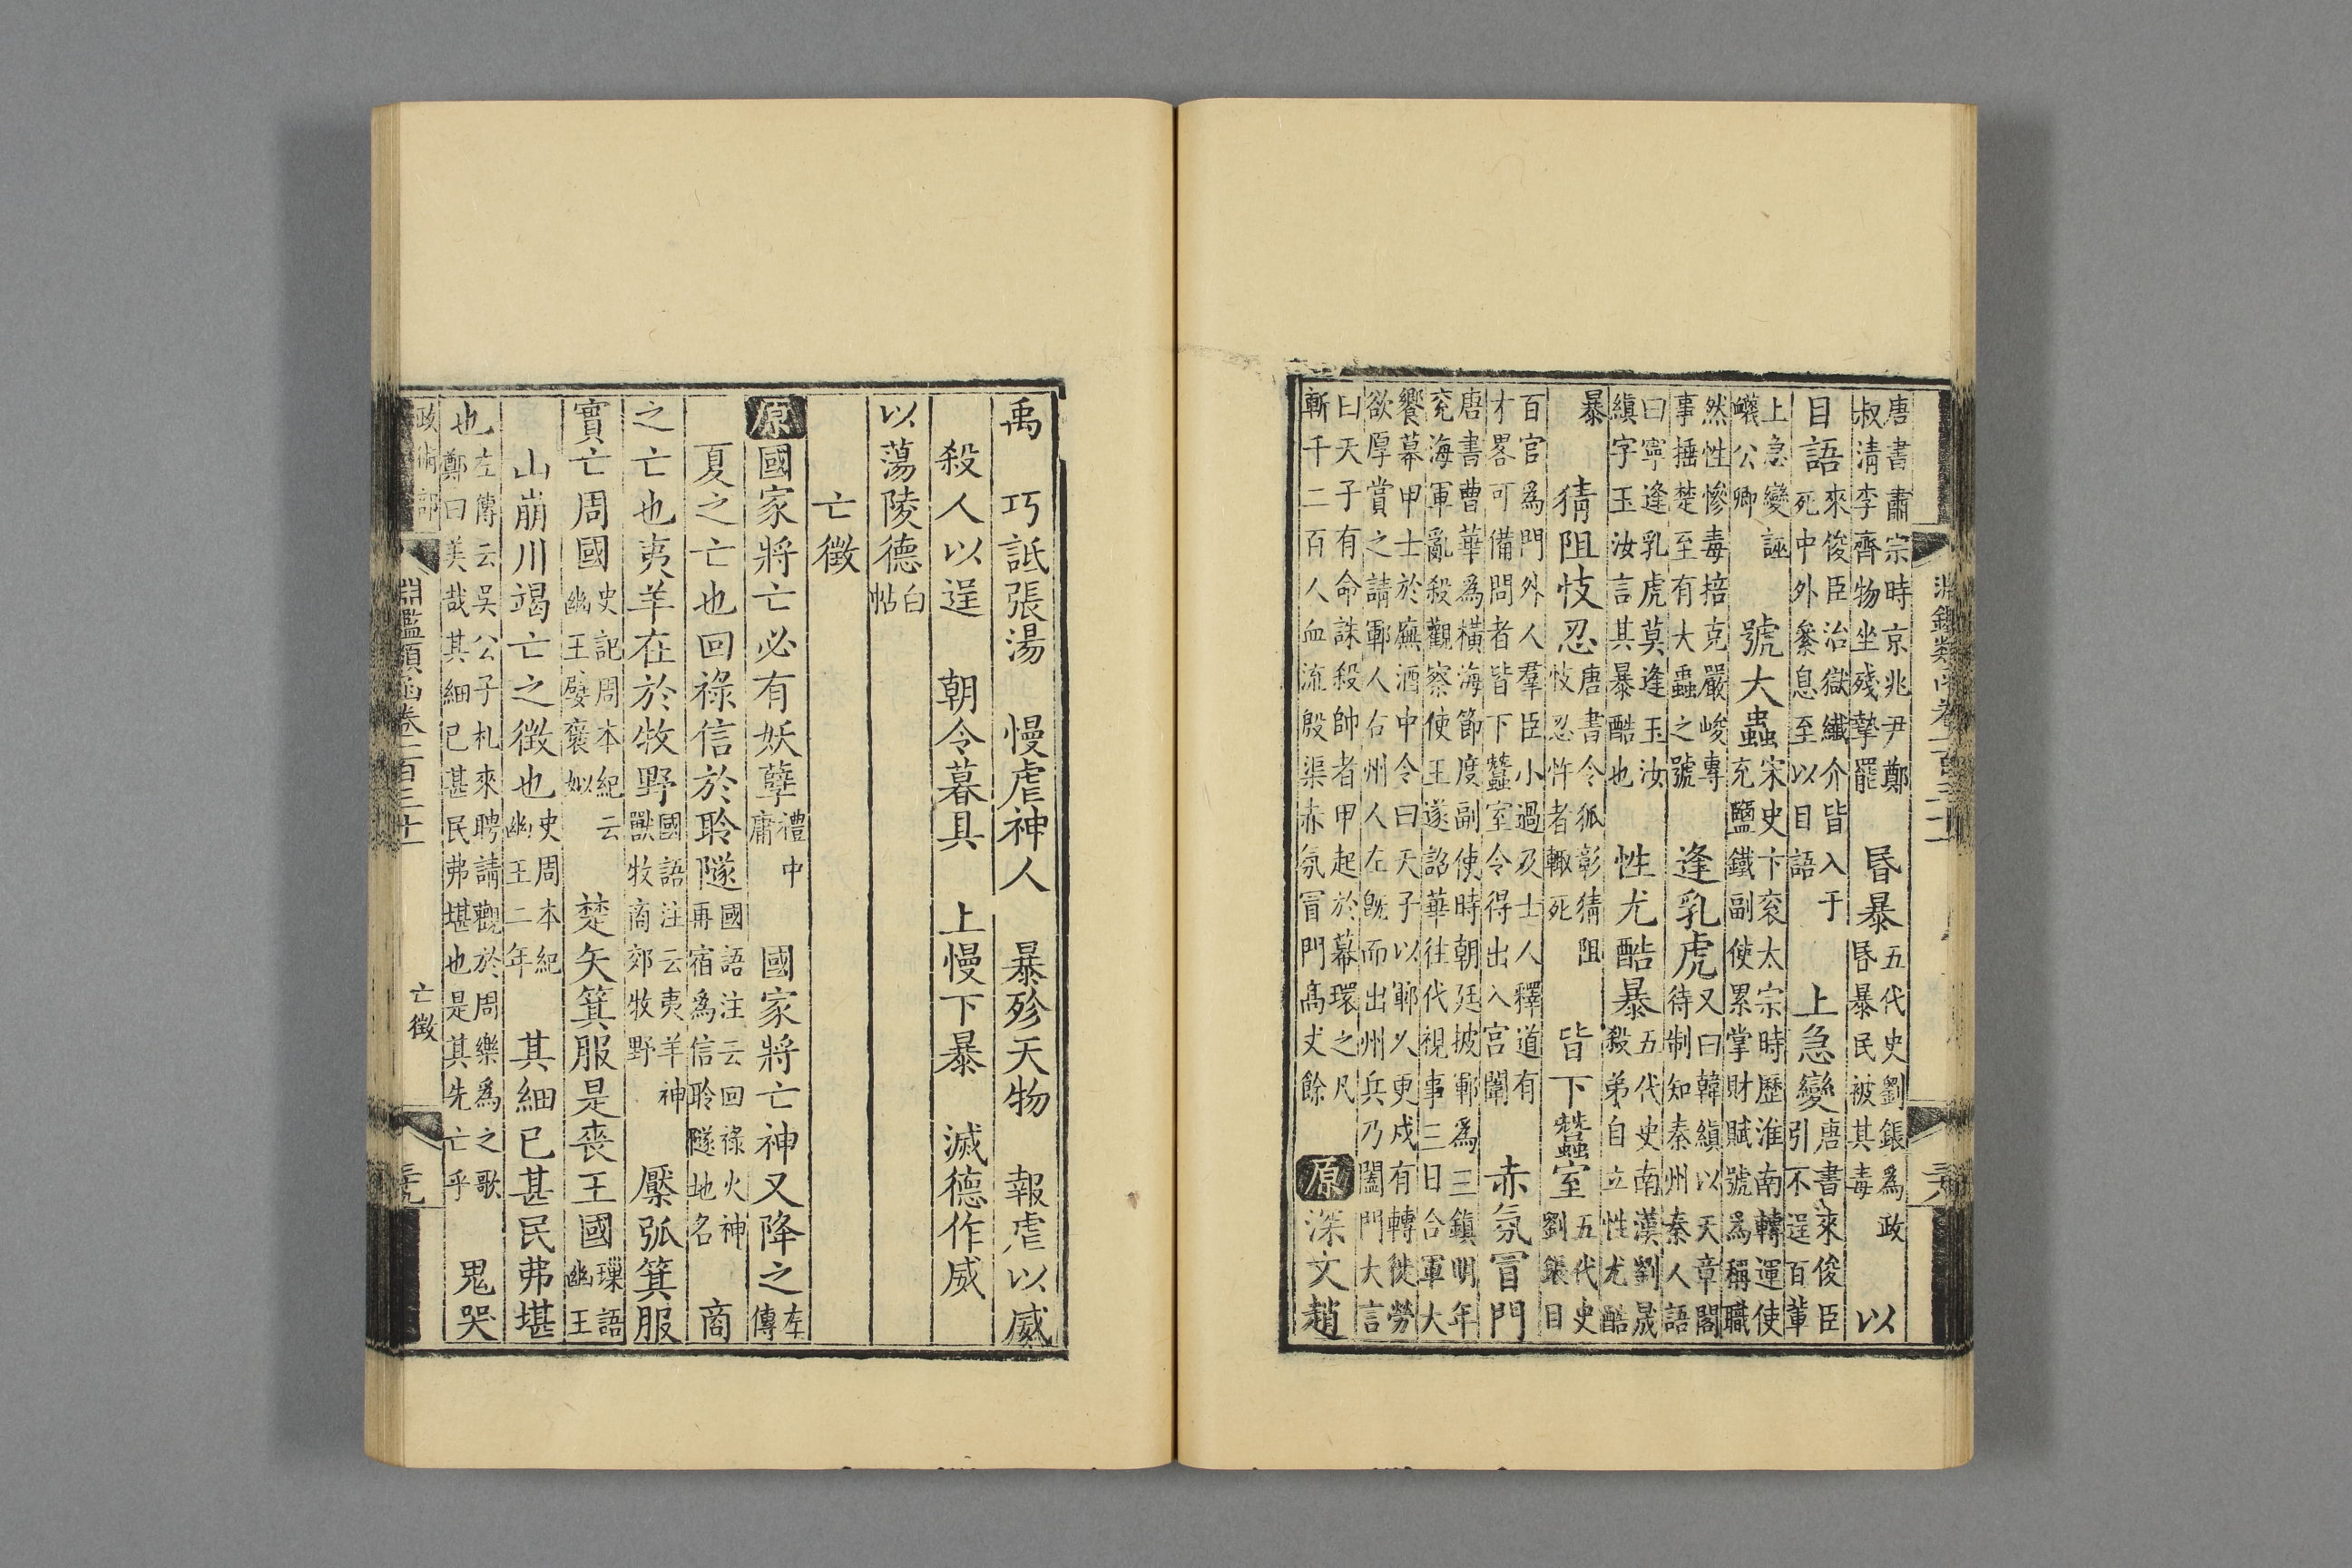 唐書肅宗時京兆尹鄭叔清李齊物坐殘摯罷 昏暴五代史劉鋹為政昏暴民被其毒 以
目語來俊臣治獄纖介皆入于死中外絫息至以目語 上急變唐書來俊臣引不逞百輩
上急變誣衊公卿 號大蟲宋史卞衮太宗時歷淮南轉運使充鹽鐵副使累掌財賦號為稱職
然性慘毒掊克嚴峻專事捶楚至有大蟲之號 逢乳虎又曰韓縝以天章閣待制知秦州秦人語
曰寧逢乳虎莫逢玉汝縝字玉汝言其暴酷也 性尤酷暴五代史南漢劉晟殺弟自立性尤酷
暴 猜阻忮忍唐書令狐彰猜阻忮忍忤者輙死 皆下蠶室五代史劉鋹日
百官為門外人羣臣小過及士人釋道有才畧可備問者皆下蠶室令得出入宮闈 赤氛冒門
唐書曹華為橫海節度副使時朝廷披鄆為三鎮明年兖海軍亂殺觀察使王遂詔華往代視事三日合軍大
饗幕甲士於廡酒中令曰天子以鄆人更戍有轉徙勞欲厚賞之請鄆人右州人左旣而出州兵乃闔門大言
曰天子有命誅殺帥者甲起於幕環之凡斬千二百人血流殷渠赤氛冒門高丈餘 原深文趙
禹 巧詆張湯 慢虐神人 暴殄天物 報虐以威
殺人以逞 朝令暮具 上慢下暴 滅德作威
以蕩陵德白帖
亡徵
原國家將亡必有妖孽禮中庸 國家將亡神又降之左傳
夏之亡也回祿信於聆隧國語注云回祿火神再宿為信聆隧地名 商
之亡也夷羊在於牧野國語注云夷羊神獸牧商郊牧野 檿弧箕服
實亡周國史記周本紀云幽王嬖褒姒 楚矢箕服是喪王國璅語幽王
山崩川竭亡之徵也史周本紀幽王二年 其細已甚民弗堪
也左傳云吳公子札來聘請觀於周樂為之歌鄭曰美哉其細已甚民弗堪也是其先亡乎 鬼哭
政術部 淵鑑類函卷一百三十一 亡徵